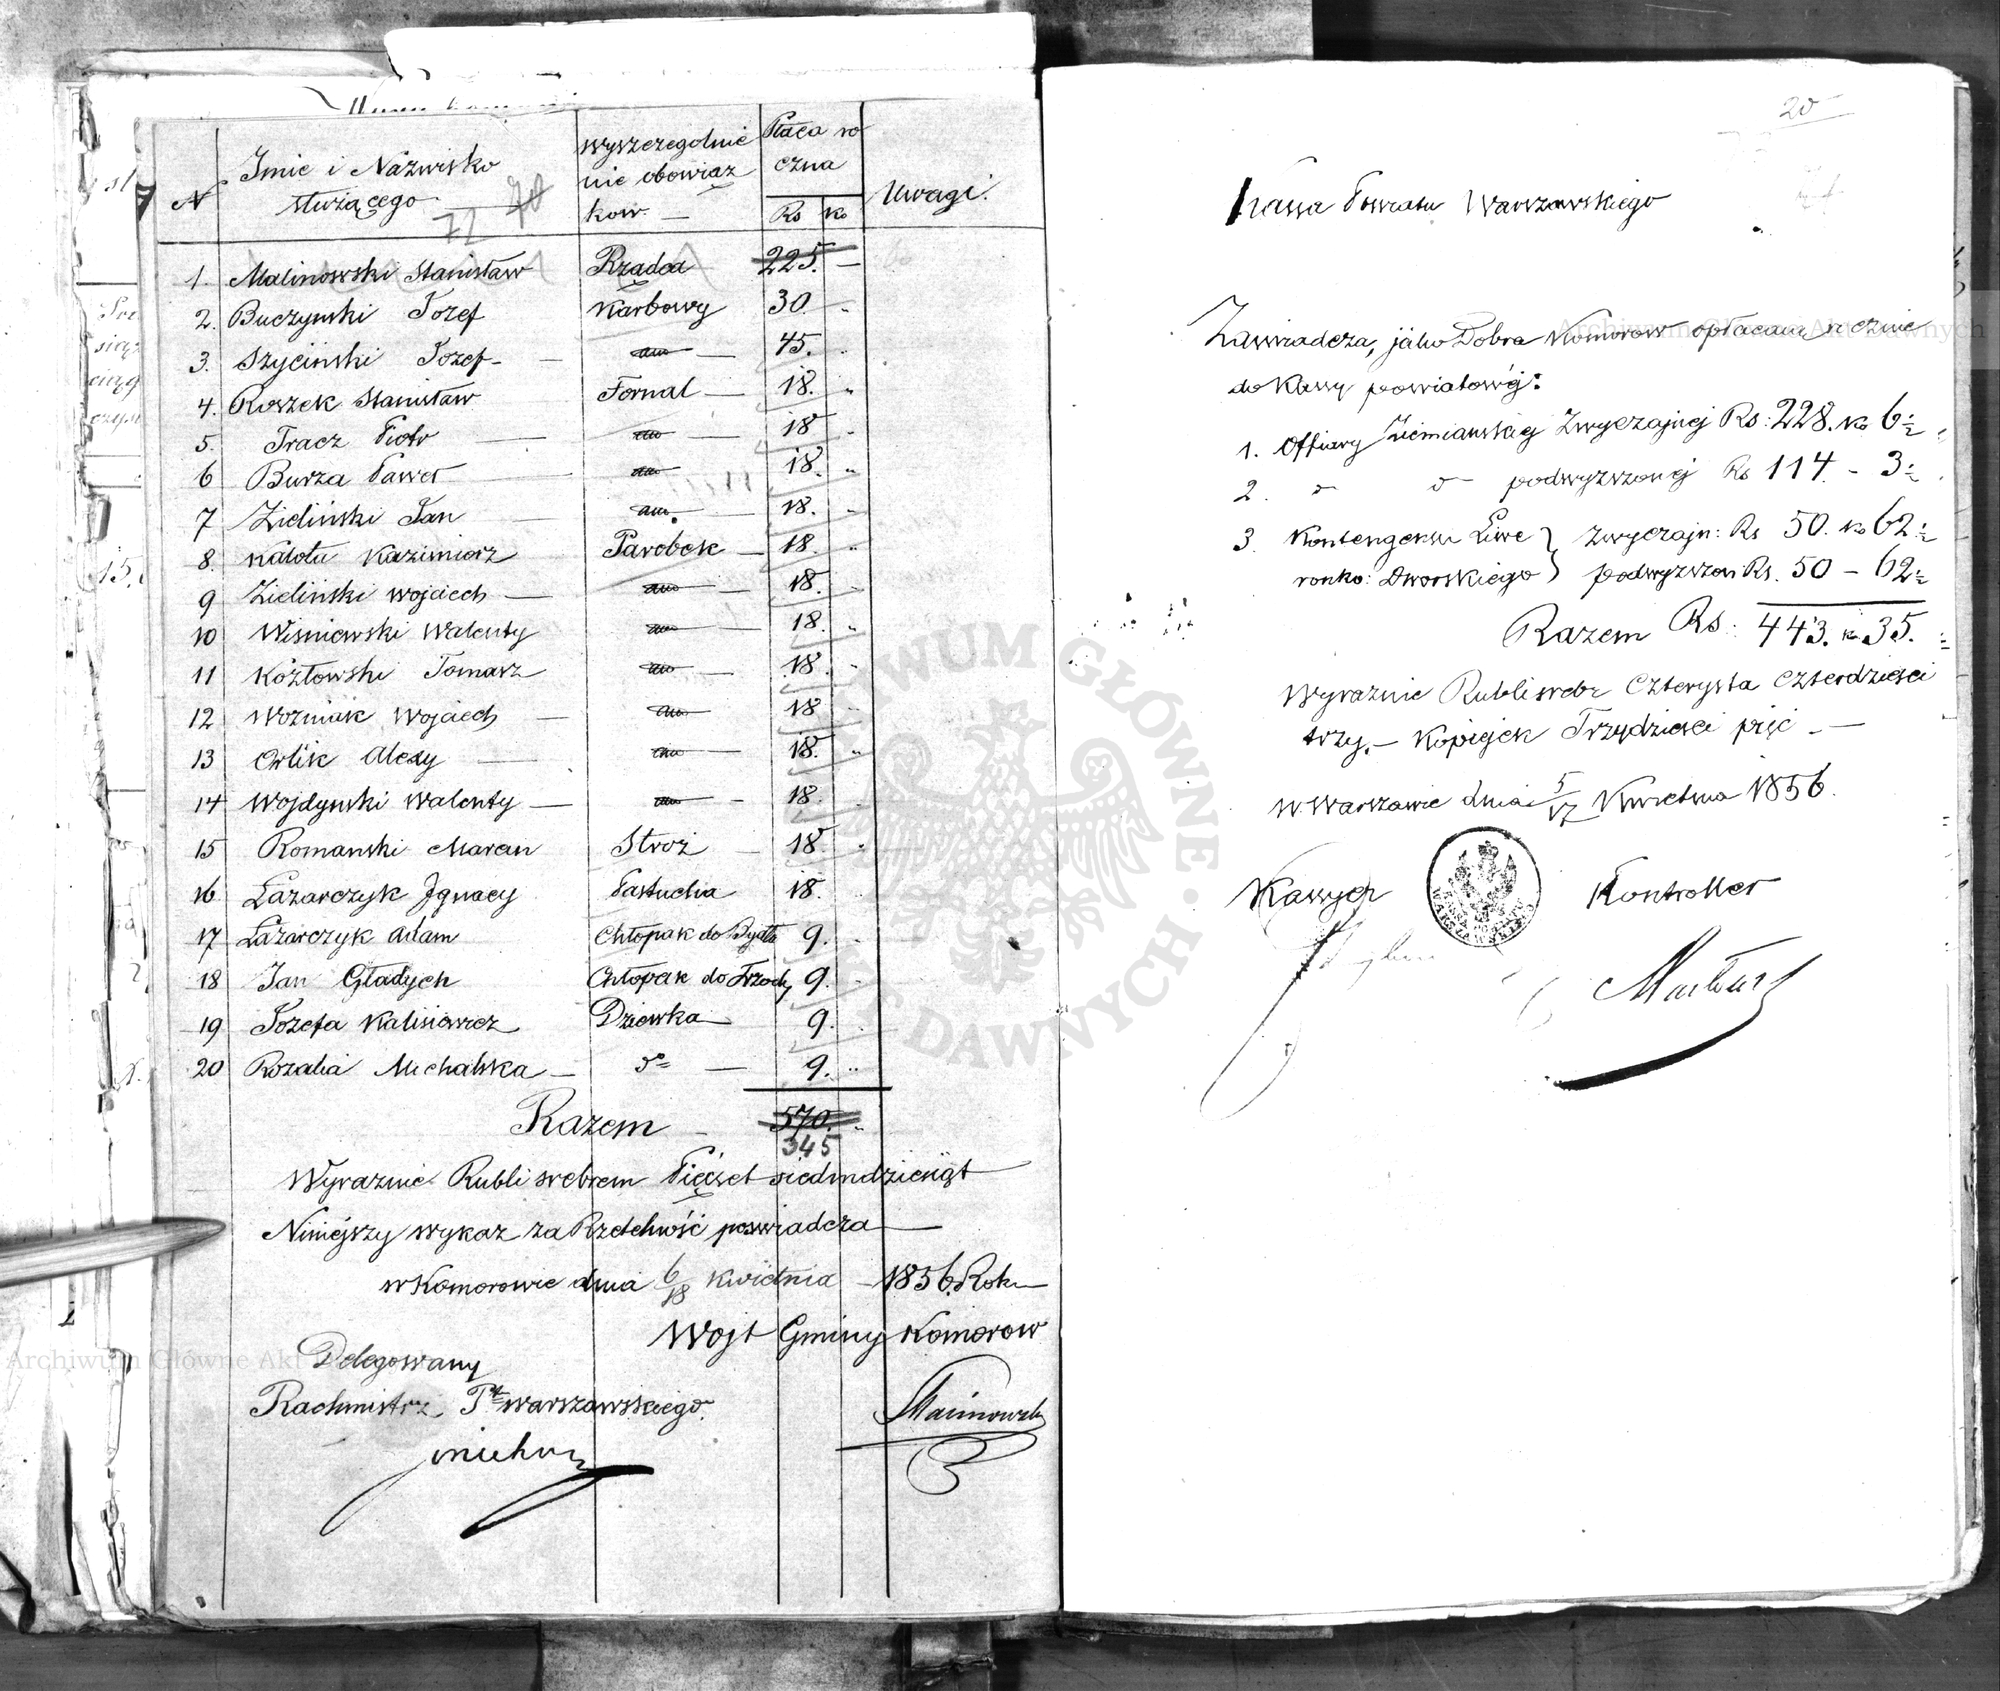 N
Imie i Nazwisko
służącego
wyszczegolnie
nie obowiąz
kow. —
Płaca ro
czna
Rs ko
Uwagi.
72 70
1. Malinowski Stanisław Rządca 225. —
2. Buczynski Jozef Karbowy 30 "
3. Szyciński Jozef — do — 45. "
4. Roszek Stanisław Fornal — 18. "
5. Tracz Piotr — do — 18 "
6 Burza Paweł — do 18. "
7 Zieliński Jan — do — 18. "
8. Kałoła Kazimierz Parobek — 18. "
9 Zieliński Wojciech — do — 18. "
10 Wiśniewski Walenty do — 18. "
11 Kozłowski Tomasz do — 18 "
12 Wozniak Wojciech — do — 18 "
13 Orlik Alexy — do — 18. "
14 Wojdynski Walenty — do — 18. "
15 Romanski Marcin Stroż — 18. "
16 Łazarczyk Ignacy Pastucha 18.
17 Łazarczyk Adam Chłopak do Bydła 9. "
18 Jan Gładych Chłopak do Trzody 9. "
19 Jozefa Kalisiewicz Dziewka — 9. "
20 Rozalia Michalska — do — 9. "
Razem — 570. "
345
Wyraznie Rubli srebrem Pięćset siedmdziesiąt
Niniejszy wykaz za Rzetelność poswiadcza —
w Komorowie dnia 6/18 Kwietnia — 1856. Roku
Wojt Gminy Komorow
Delegowany
Rachmistrz Ptu Warszawskiego.
Malinowski
20
Kassa Powiatu Warszawskiego
Zaswiadcza, jako Dobra Komorow opłacaią rocznie
do Kassy powiatowéj:
1. Offiary Ziemianskiéj Zwyczajnéj Rs: 228. ko 6½
2. do do podwyższonéj Rs 114 — 3½
3. Kontengensu Liwe } zwyczajn: Rs 50. ko 62½
ronko: Dworskiego } podwyższon Rs. 50 — 62½
Razem Rs: 443. k. 35.
Wyraznie Rubli srebr Czterysta Czterdzieści
trzy. — Kopiejek Trzydzieści pięć —
w Warszawie dnia 5/17 Kwietnia 1856.
Kassyer Kontroller
ARCHIWUM GŁÓWNE AKT DAWNYCH
Archiwum Główne Akt Dawnych
Archiwum Główne Akt